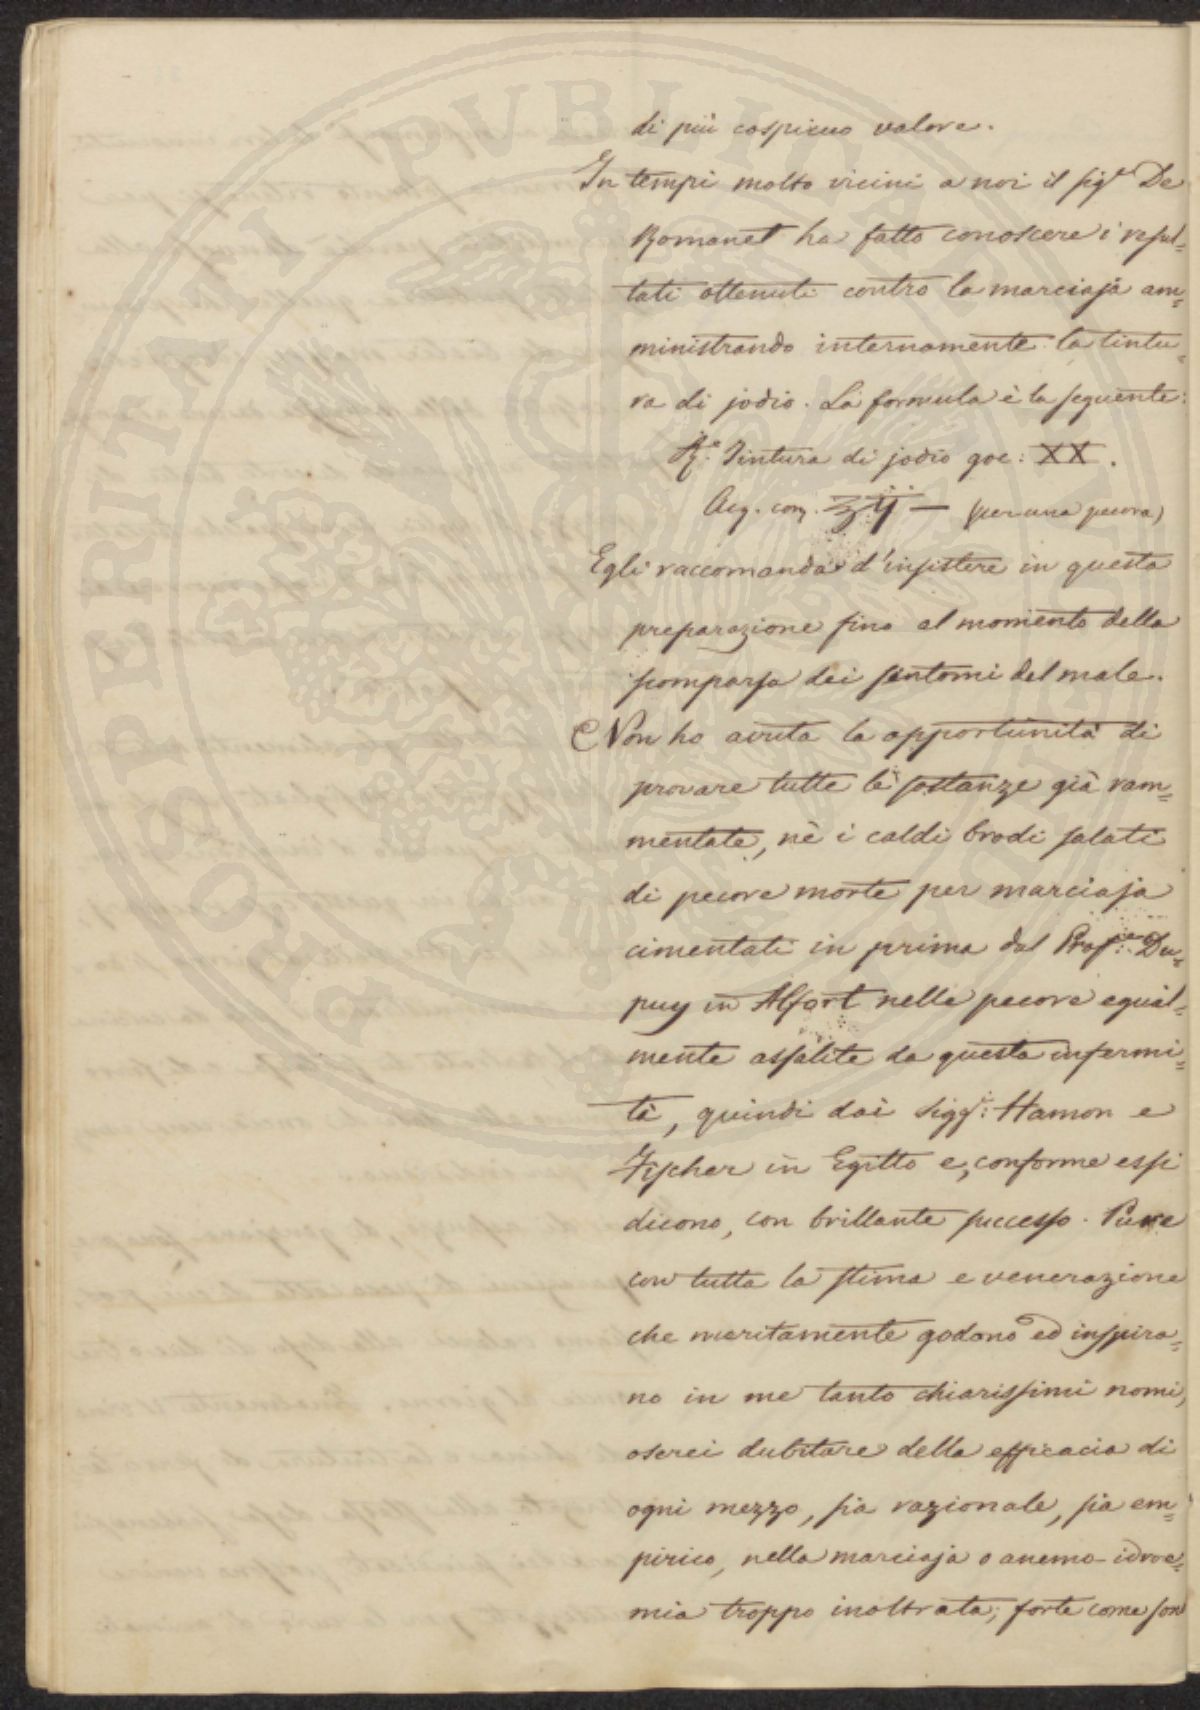 di più cospicuo valore.
In tempi molto vicini a noi il sigr De
Romanet ha fatto conoscere i resul=
tati ottenuti contro la marciaja am=
ministrando internamente la tintu=
ra di jodio. La formula è la seguente:
Re. Tintura di jodio goc: XX.
Acq. com. ʒij — (per una pecora)
Egli raccomanda d'insistere in questa
preparazione fino al momento della
scomparsa dei sintomi del male.
Non ho avuta la opportunità di
provare tutte le sostanze già ram=
mentate, nè i caldi brodi salati
di pecore morte per marciaja
cimentati in prima dal Profre Du=
puy in Alfort nelle pecore egual=
mente assalite da questa infermi=
tà, quindi dai Siggri: Hamon e
Fischer in Egitto e, conforme essi
dicono, con brillante successo. Pure
con tutta la stima e venerazione
che meritamente godono ed inspira=
no in me tanto chiarissimi nomi,
oserei dubitare della efficacia di
ogni mezzo, sia razionale, sia em=
pirico, nella marciaja o anemo-idroe=
mia troppo inoltrata; forte come son
PROSPERITATI PVBLICAE